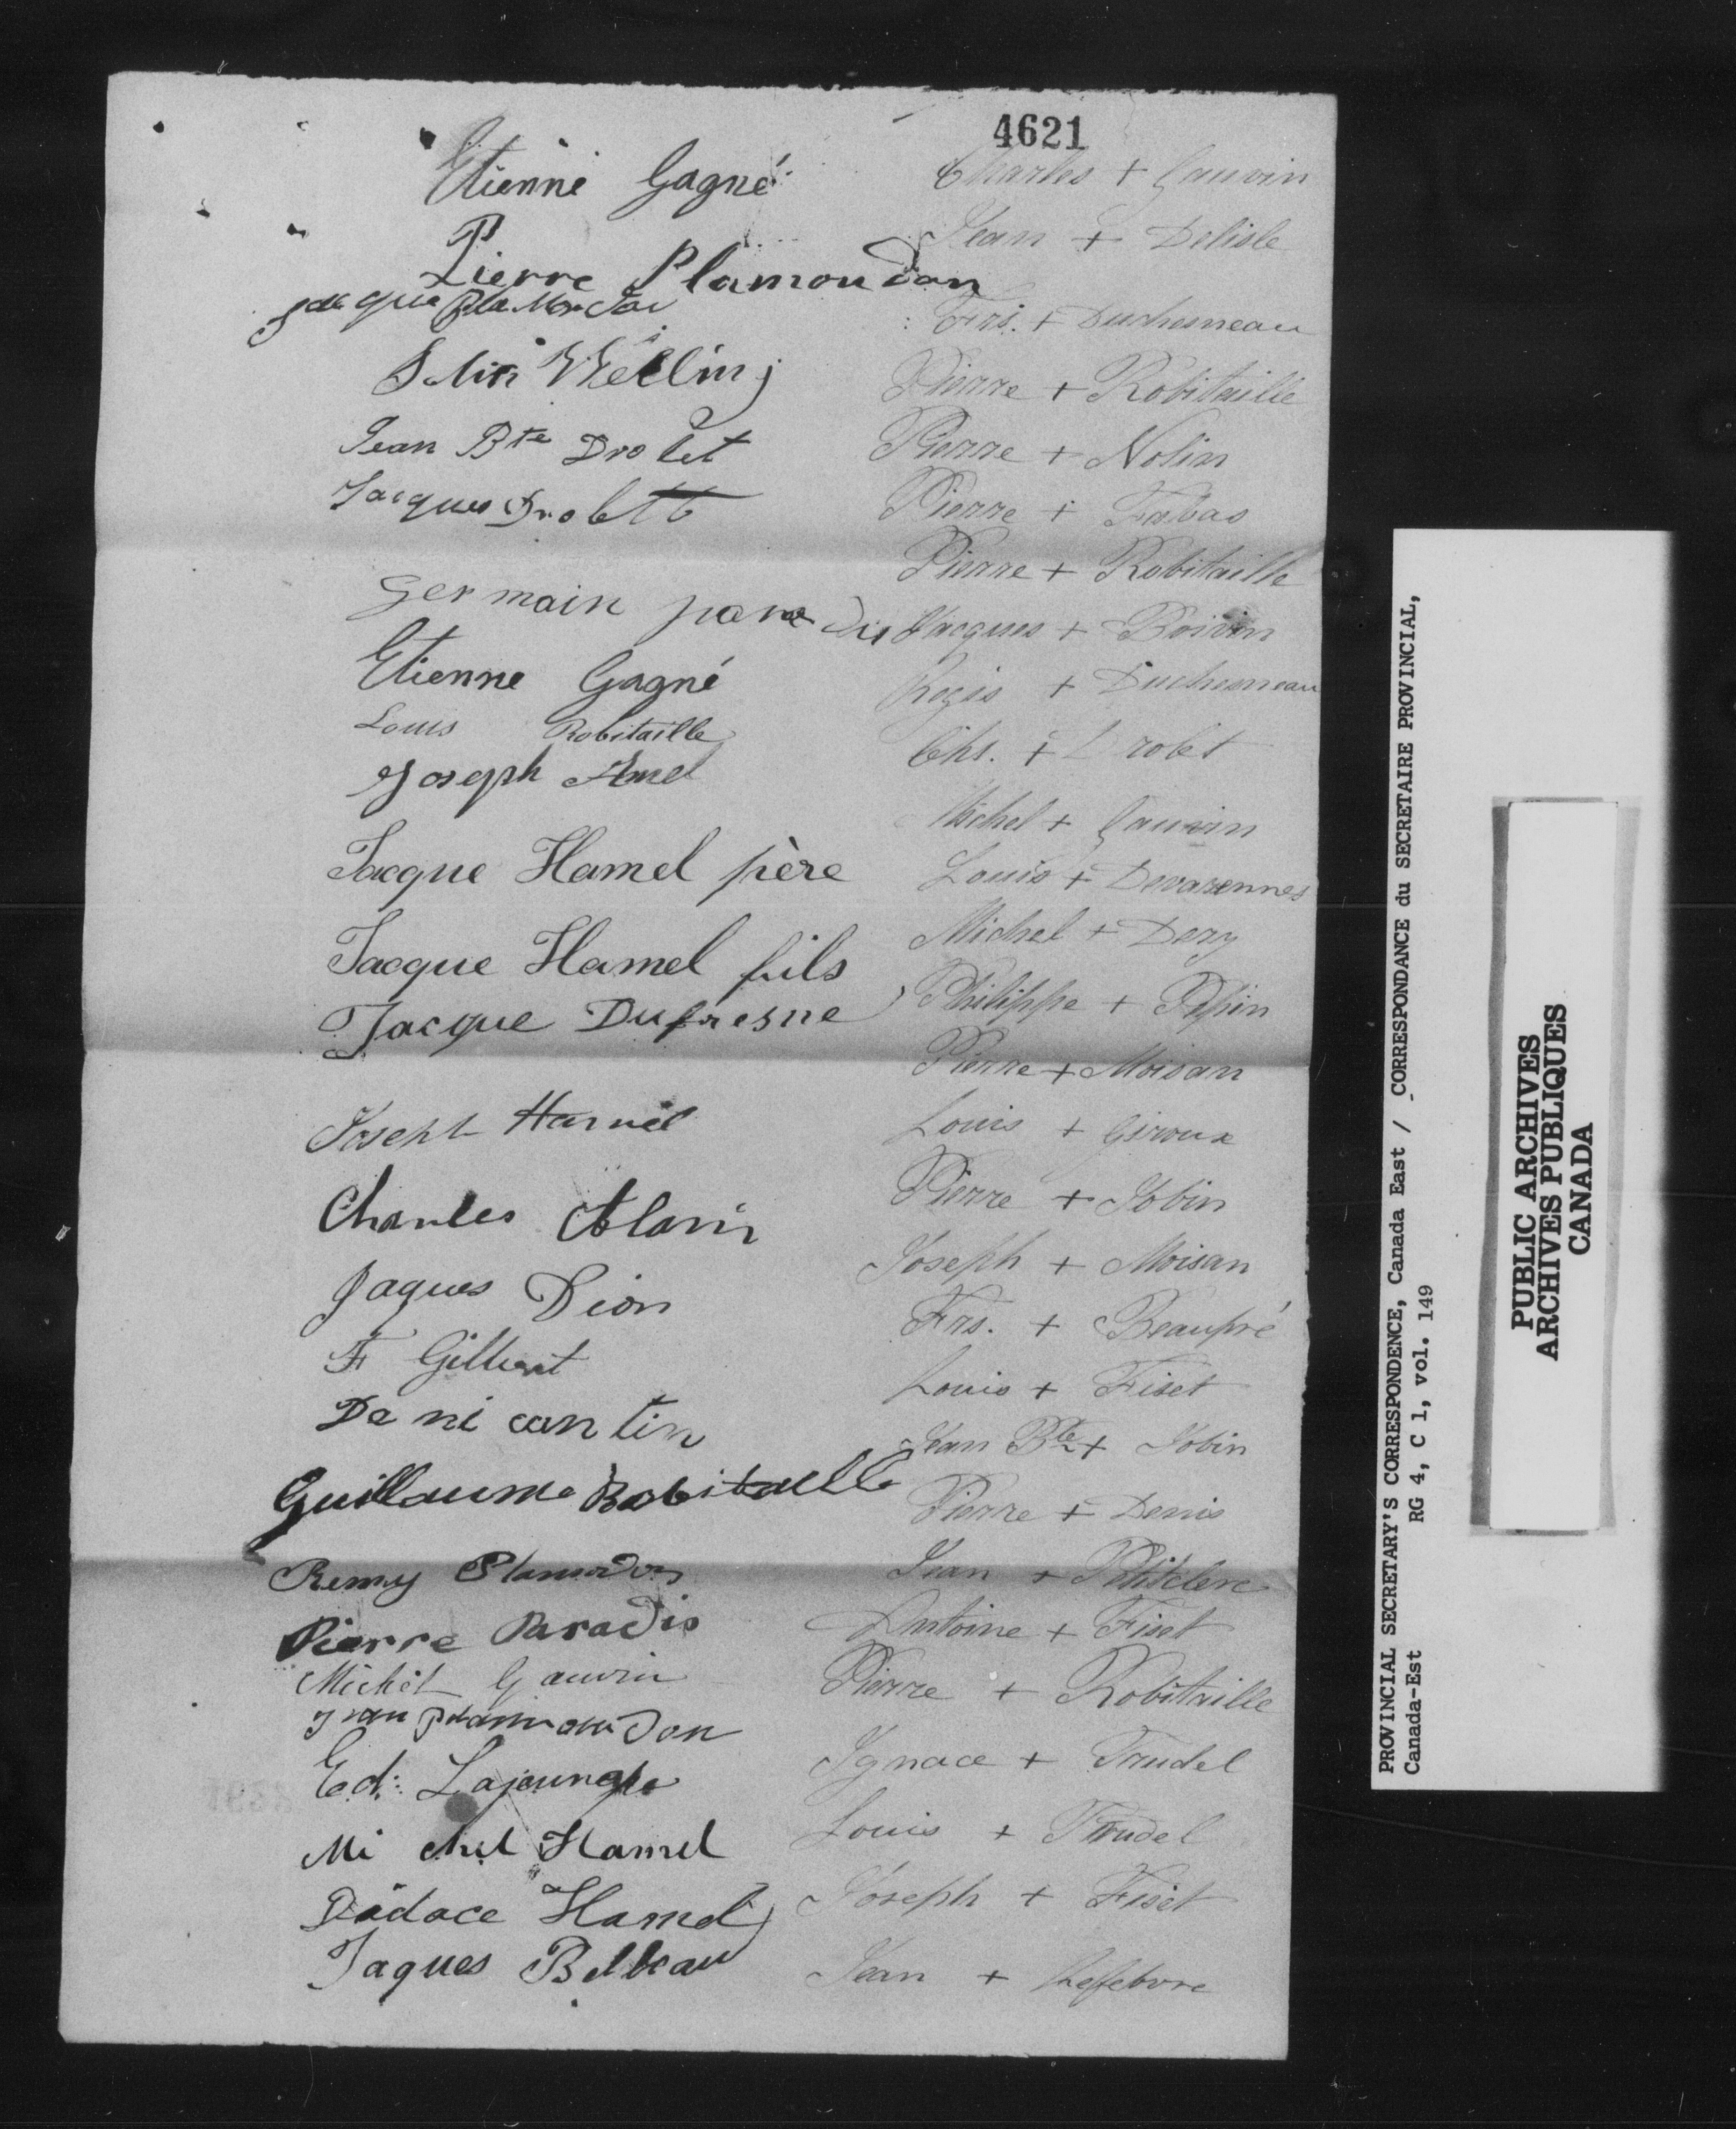 4621
Etienne Gagné
Pierre Plamondon
Jean Bte Drolet
Jacques Drolett
Germain paradis
Etienne Gagné
Louis Robitaille
Joseph Amel
Jacque Hamel père
Jacque Hamel fils
Jacque Dufresne
Joseph Hamel
Charles Alain
Jaques Dion
F Gilbert
De ni can tin
Guillaume Robitaille
Remy Plamondon
Pierre Paradis
Michel Gauvin
Jean plamondon
Ed: Lajeunesse
Mi chel Hamel
Didace Hamel
Jaques Belleau
Charles + Gauvin
Jean + Delisle
Frs. + Duchesneau
Pierre + Robitaille
Pierre + Nolin
Pierre +
Pierre + Robitaille
Jacques + Boivin
Regis + Duchesneau
Chs. + Drolet
Michel + Gauvin
Louis + Devarennes
Michel + Dery
Philippe + Pepin
Pierre + Moisan
Louis + Giroux
Pierre + Jobin
Joseph + Moisan
Frs. + Beaupré
Louis + Fiset
Jean Bte + Jobin
Pierre + Denis
Jean + Petitclerc
Antoine + Fiset
Pierre + Robitaille
Ignace + Trudel
Louis + Trudel
Joseph + Fiset
Jean + Lefebvre
PROVINCIAL SECRETARY'S CORRESPONDENCE, Canada East / CORRESPONDANCE du SECRETAIRE PROVINCIAL,
Canada-Est RG 4, C 1, vol. 149
PUBLIC ARCHIVES
ARCHIVES PUBLIQUES
CANADA